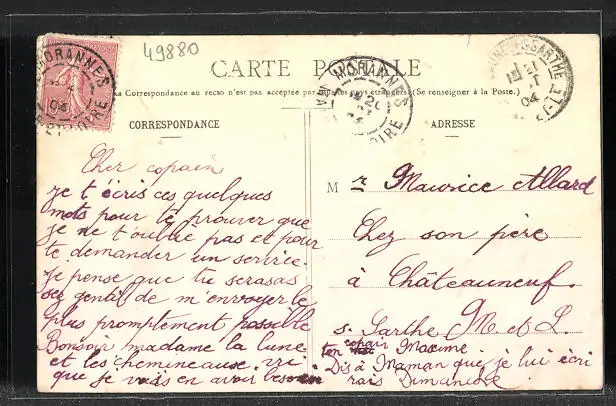 49880
MORANNES
04
CARTE POSTALE
MORANNES
SARTHE
04
La Correspondance au recto n'est pas acceptée par tous les pays étrangers (Se renseigner à la Poste.)
CORRESPONDANCE
Cher copain
je t'écris ces quelques
mots pour te prouver que
je ne t'oublie pas et pour
te demander un service.
je pense que tu serasas
sez gentil de m'envoyer le
plus promptement possible
Bonsoir madame la lune
et les chemineause vri
que je vais en avoir besoin
ADRESSE
M r Maurice Allard
Chez son père
à Châteauneuf.
s. Sarthe M. et L.
ton copain Maxime
Dis à Maman que je lui écri
rais Dimanche